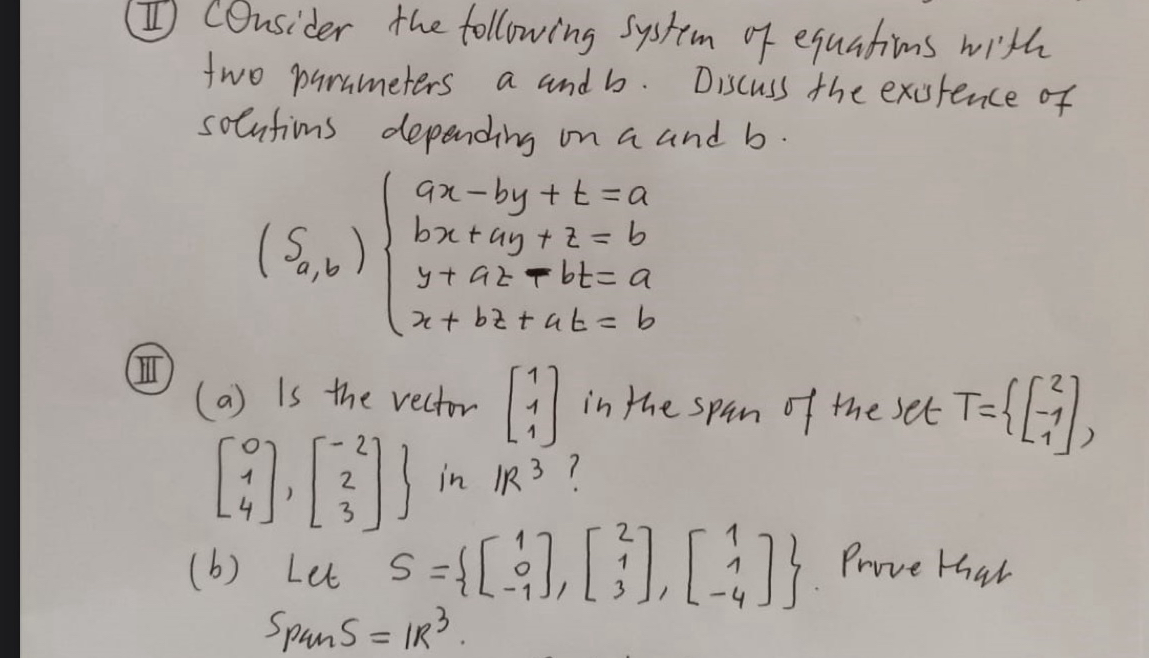 (II) Consider the following system of equations with
two parameters a and b. Discuss the existence of
solutions depending on a and b.
(S_{a,b}) { ax - by + t = a
bx + ay + z = b
y + az - bt = a
x + bz + at = b
(III) (a) Is the vector [1 1 1] in the span of the set T = {[2 -1 1],
[0 1 4], [-2 2 3]} in IR³ ?
(b) Let S = {[1 0 -1], [2 1 3], [1 1 -4]}. Prove that
Span S = IR³.